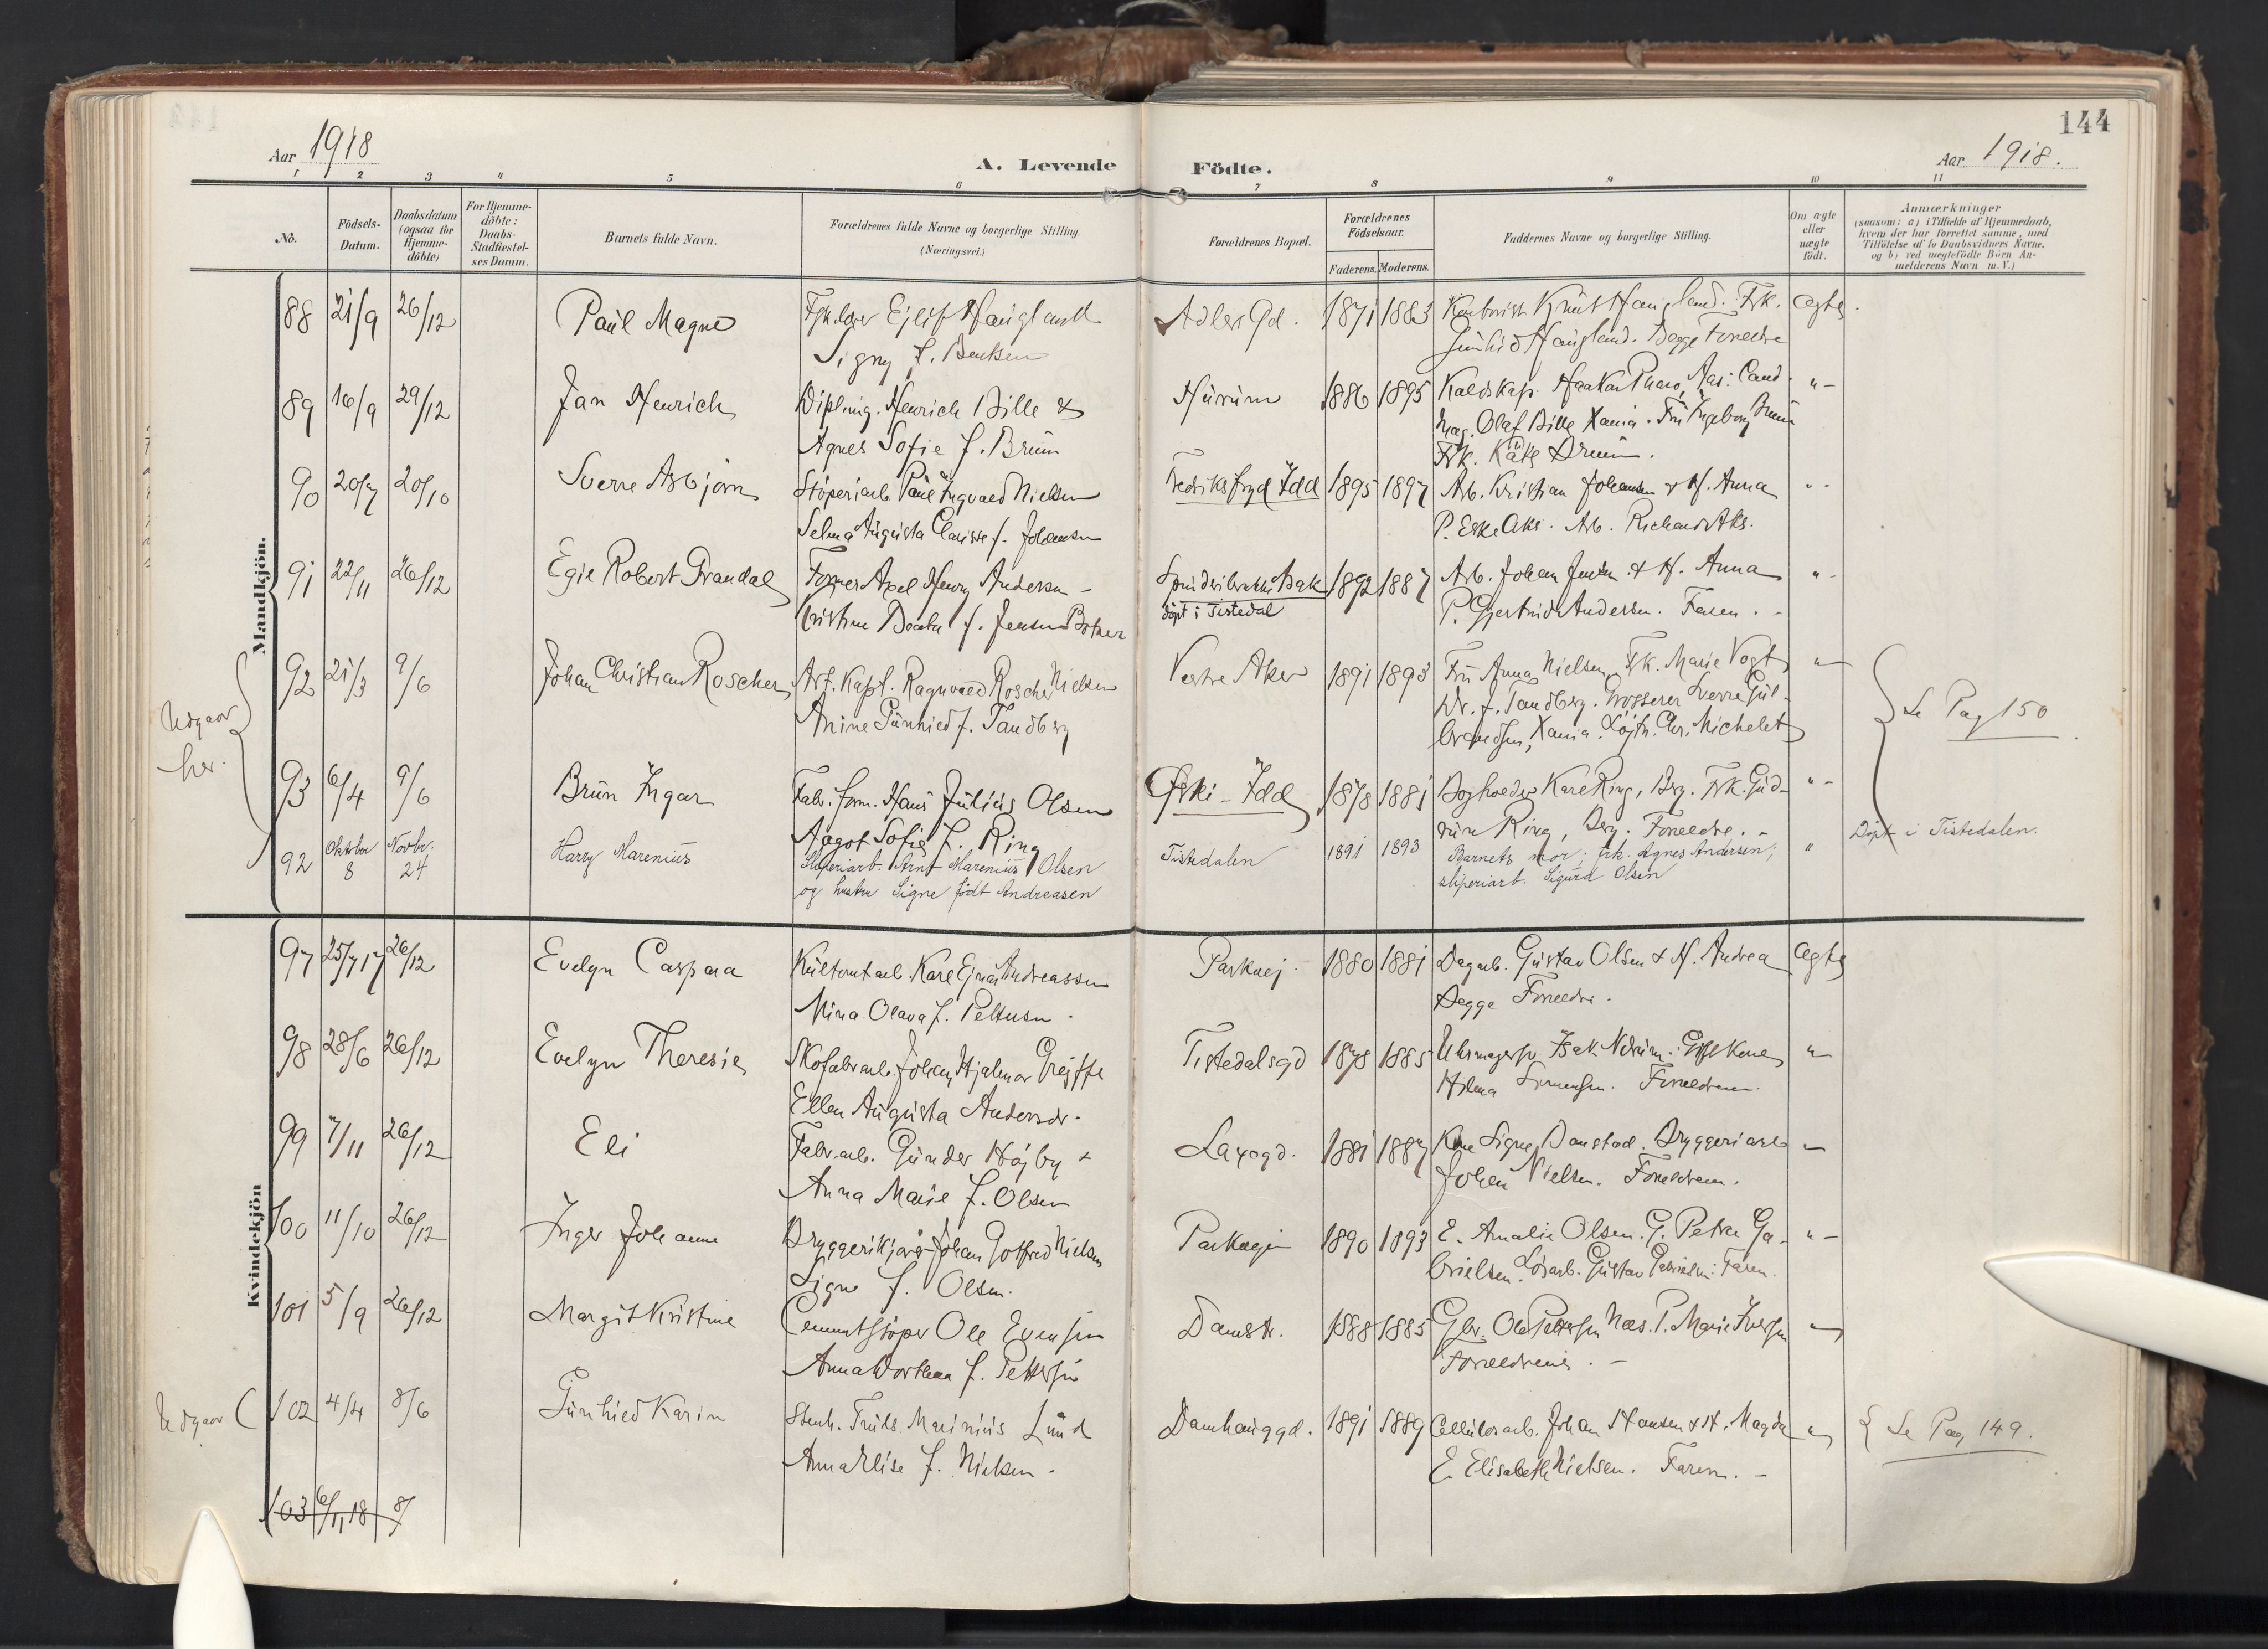 144
Aar 1918
A. Levende Födte.
Aar 1918.
1 2 3 4 5 6 7 8 9 10 11
No.
Födsels-
Datum.
Daabsdatum
(ogsaa for
Hjemme-
döbte)
For Hjemme-
döbte:
Daabs-
Stadfæstel-
ses Datum.
Barnets fulde Navn.
Forældrenes fulde Navne og borgerlige Stilling.
(Næringsvei.)
Forældrenes Bopæl.
Forældrenes
Födselsaar.
Faderens. Moderens.
Faddernes Navne og borgerlige Stilling.
Om ægte
eller
uægte
födt.
Anmærkninger
(saasom: a) i Tilfælde af Hjemmedaab,
hvem der har forrettet samme, med
Tilföielse af to Daabsvidners Navne,
og b) ved uægtefödte Börn An-
melderens Navn m. V.)
Mandkjön.
88 21/9 26/12 Paul Magne Ejlif Haugland Adlers Gd. 1871 1883 Knut Haugland. Frk. Ægte
Signy f. Bentsen Gunhild Haugland. Begge Forældre
89 16/9 29/12 Jan Henrich Dipl.ing. Henrich Bille & Hurum 1886 1895 Cand. "-
Agnes Sofie f. Bruun mag. Olaf Bille Xania. Fru Ingeborg Bruun
Frk. Käthe Bruun.
90 20/7 20/10 Sverre Asbjørn Støperiarb. Paul Ingvald Nielsen Fredriksfryd Idd 1895 1897 Arb. Kristian Johansen & H. Anna "-
Selma Augusta Clarisse f. Johansen P. Aks. Arb. Richard Aks.
91 22/11 26/12 Egil Robert Grandal Former Axel Henry Andersen - Bak 1892 1887 Arb. Johan Jensen & H. Anna "-
Kristine Beate f. Jensen døpt i Tistedal P. Gjertrud Andersen. Faren.
Udgaar
her.
92 21/3 9/6 Johan Christian Roscher Art. Kapt. Ragnvald Roscher Nielsen Vestre Aker 1891 1893 Fru Anna Nielsen, Frk. Marie Vogt "-
Anine Gunhild f. Tandberg Dr. J. Tandberg. Grosserer Sverre Gul-
brandsen, Xania. Løjtn. Chr. Michelet
Se Pag 150
93 6/4 9/6 Brun Ingar Fab. form. Hans Julius Olsen Ørki - Idd 1878 1881 Bogholder Karl Ring, Brg. Frk. Gud- "-
Aagot Sofie f. Ring run Ring, Brg. Forældre. -
92 Oktober 8 Novbr. 24 Harry Marenius Sliperiarb. Arnt Marenius Olsen Tistedalen 1891 1893 Barnets mor; frk. Agnes Andersen; " Døpt i Tistedalen.
og hustru Signe født Andreasen sliperiarb. Sigurd Olsen
Kvindekjön
97 25/7 17 26/12 Evelyn Caspara Karl Ejnar Andreassen Parkvej. 1880 1881 Dagarb. Gustav Olsen & H. Andrea Ægte
Mina Olava f. Pettersen. Begge Forældre.
98 28/6 26/12 Evelyn Theresie Skofabrarb. Johan Hjalmar Grejffe Tistedalsgd 1878 1885 Isak Nerum. "
Ellen Augusta Andersdr. Hilma Simensen. Forældrene.
99 7/11 26/12 Eli Fabr.arb. Gunder Højby & Laxegd. 1881 1887 Kone Signe Damstad. Bryggeriarb "
Anna Marie f. Olsen Johan Nielsen. Forældrene.
100 11/10 26/12 Inger Johanne Bryggerikjører Johan Gotfred Nielsen Parkvejen 1890 1893 E. Amalie Olsen. G. Petra Ga- "-
Signe f. Olsen. brielsen. Løsarb. Gustav Gabrielsen. Faren.
101 5/9 26/12 Margit Kristine Cementstøper Ole Evensen Damstr. 1888 1885 Gbr. Ole Pettersen Næs. P. Marie Iversen "
Anna Dorthea f. Pettersen Forældrene. -
Udgaar ( 102 4/4 8/6 Gunhild Karin Stenh. Truls Marinius Lund Damhauggd. 1891 1889 Cellulosarb. Johan Hansen & H. Magda " { Se Pag 149.
Anna Elise f. Nielsen - E. Elisabeth Nielsen. Faren. -
103 6/11 18 8/